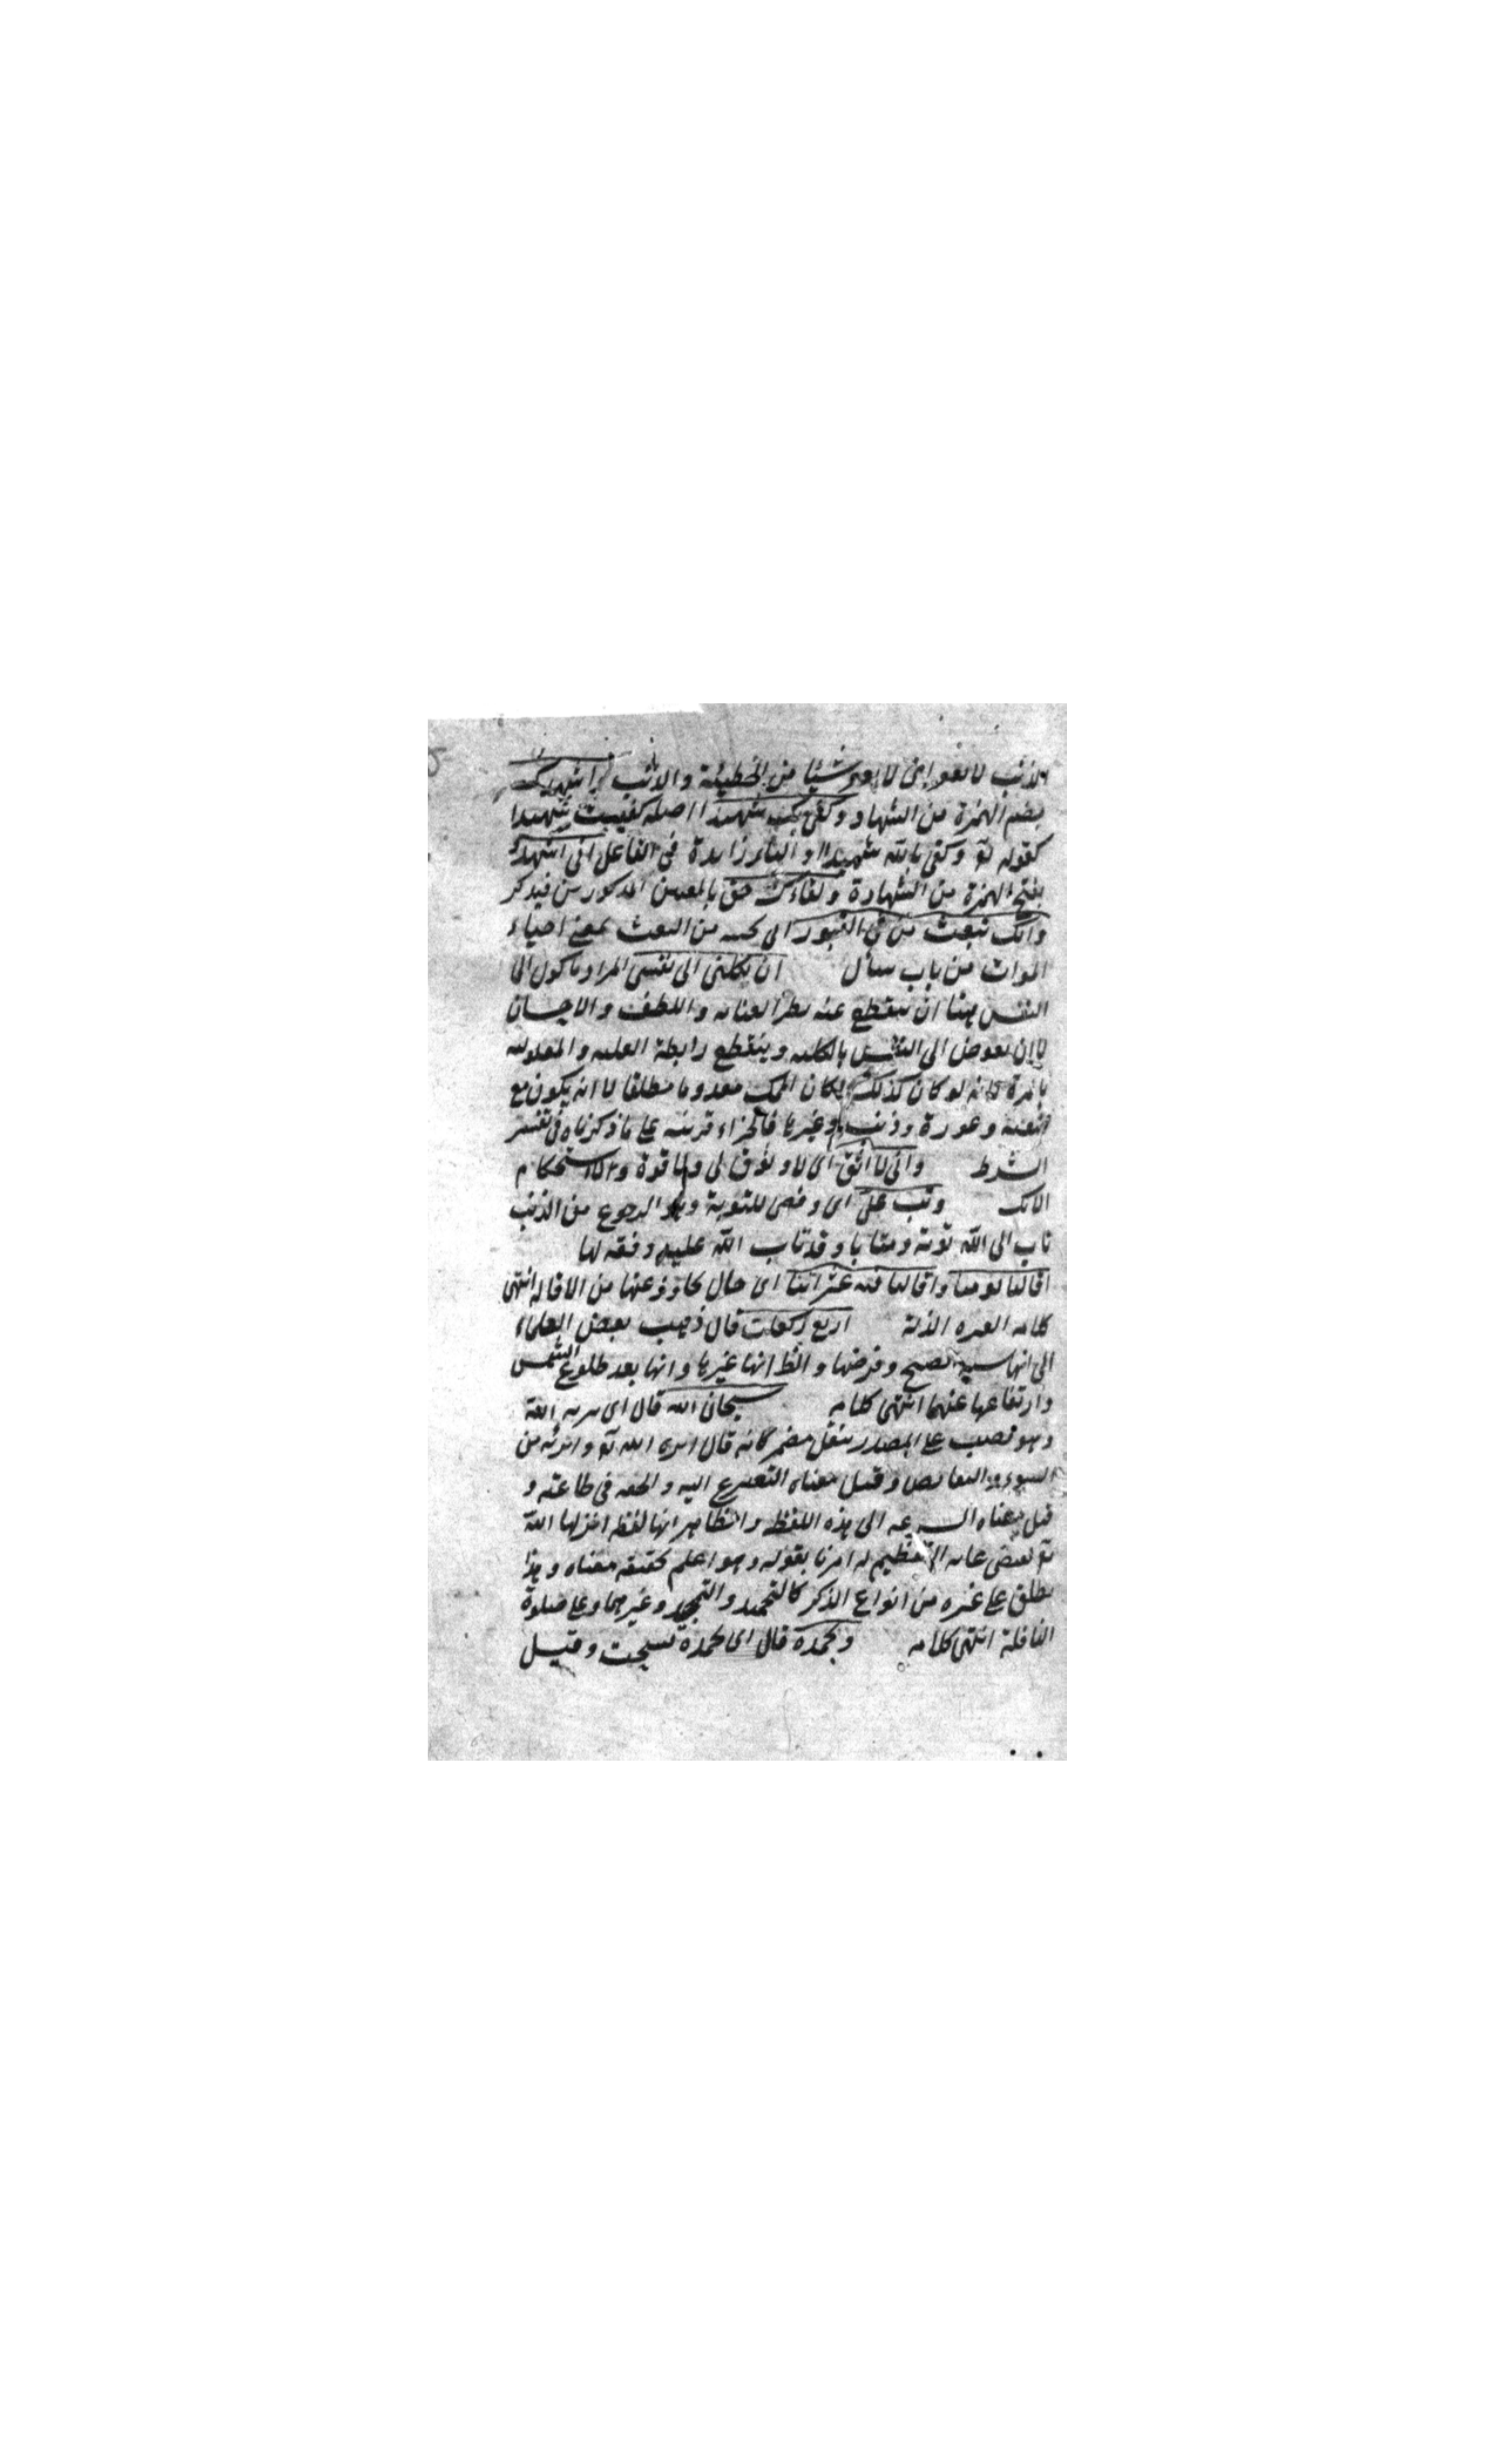 والذنب لا يغو اني لا يعد شيئا من الخطيئة والاثب اشهدك
بضم الهمزة من الشهاد وكفى بك شهيدا اصله كفيت شهيدا
كقوله تع وكفى بالله شهيدا والباء زايدة في الفاعل اني اشهدك
بفتح الهمزة من الشهادة ولقاءك حق بالمعنيين المذكورين فيدكر
وانك تبعث من في القبور اي تحييه من البعث بمعنى احياء
الموات من باب سأل ان تكلني الى نفسي المراد بالوكول الى
النفس هنا ان ينقطع عنه نظر العناية واللطف والاحسان
لا ان يفوض الى النفس بالكلية وينقطع رابطة العلية والمعلولية
بالمرة لانه لو كان كذلك لكان الممك معدوما مطلقا لا انه يكون مع
ضعفه وعورة وذنب وغيرها فالجزاء قرينة على ما ذكرناه في تفسير
الشرط واني لا اثق اي لا وثوق لي ولا قوة ولا استحكام
الا بك وتب علي اي وفقني للتوبة وهو الرجوع من الذنب
تاب الى الله توبة ومتابا وقد تاب الله عليه وفقه لها
اقالنا يومنا واقالنا فيه عثراتنا اي حال تجاوز عنها من الاقالة انتهى
كلامه العثرة الزلة اربع ركعات قال ذهب بعض العلماء
الى انها سنة الصبح وفرضها والظ انها غيرها وانها بعد طلوع الشمس
وارتفاعها عنهما انتهى كلامه سبحان الله قال اي تنزيه الله
وهو نصب على المصدر بفعل مضمر كانه قال ابرئ الله تع وانزهه من
السوء والنقايص وقيل معناه التسرع اليه والخفة في طاعته و
قيل معناه السرعة الى هذه اللفظة والظاهر انها لفظة انزلها الله
تع يقتضي غاية التعظيم له امرنا بقوله وهو اعلم بحقيقة معناه وهذا
يطلق على غيره من انواع الذكر كالتحميد والتمجيد وغيرهما وعلى صلوة
النافلة انتهى كلامه وبحمده قال اي بحمده سبحت وقيل